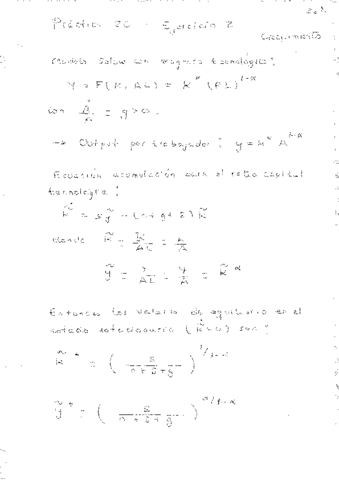 Práctica 3C - Ejercicio 2
Crecimiento
Modelo Solow con progreso tecnológico:
Y = F(K, AL) = K^α (AL)^{1-α}
con Ȧ/A = g > 0.
→ Output por trabajador: y = k^α A^{1-α}
Ecuación acumulación para el ratio capital
tecnología:
k̃̇ = sỹ - (n+g+δ) k̃
donde k̃ = K/AL = k/A
ỹ = Y/AL = y/A = k̃^α
Entonces los valores de equilibrio en el
estado estacionario (k̃̇ = 0) son:
k̃* = ( s / n+δ+g )^{1/1-α}
ỹ* = ( s / n+δ+g )^{α/1-α}